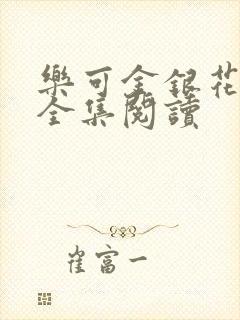 樂可金銀花
全集閱讀
崔富一